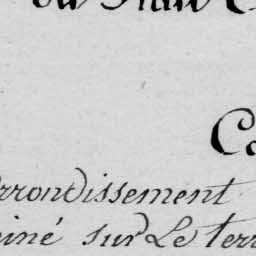 ou
C
rrondissement
iné sur Le terr